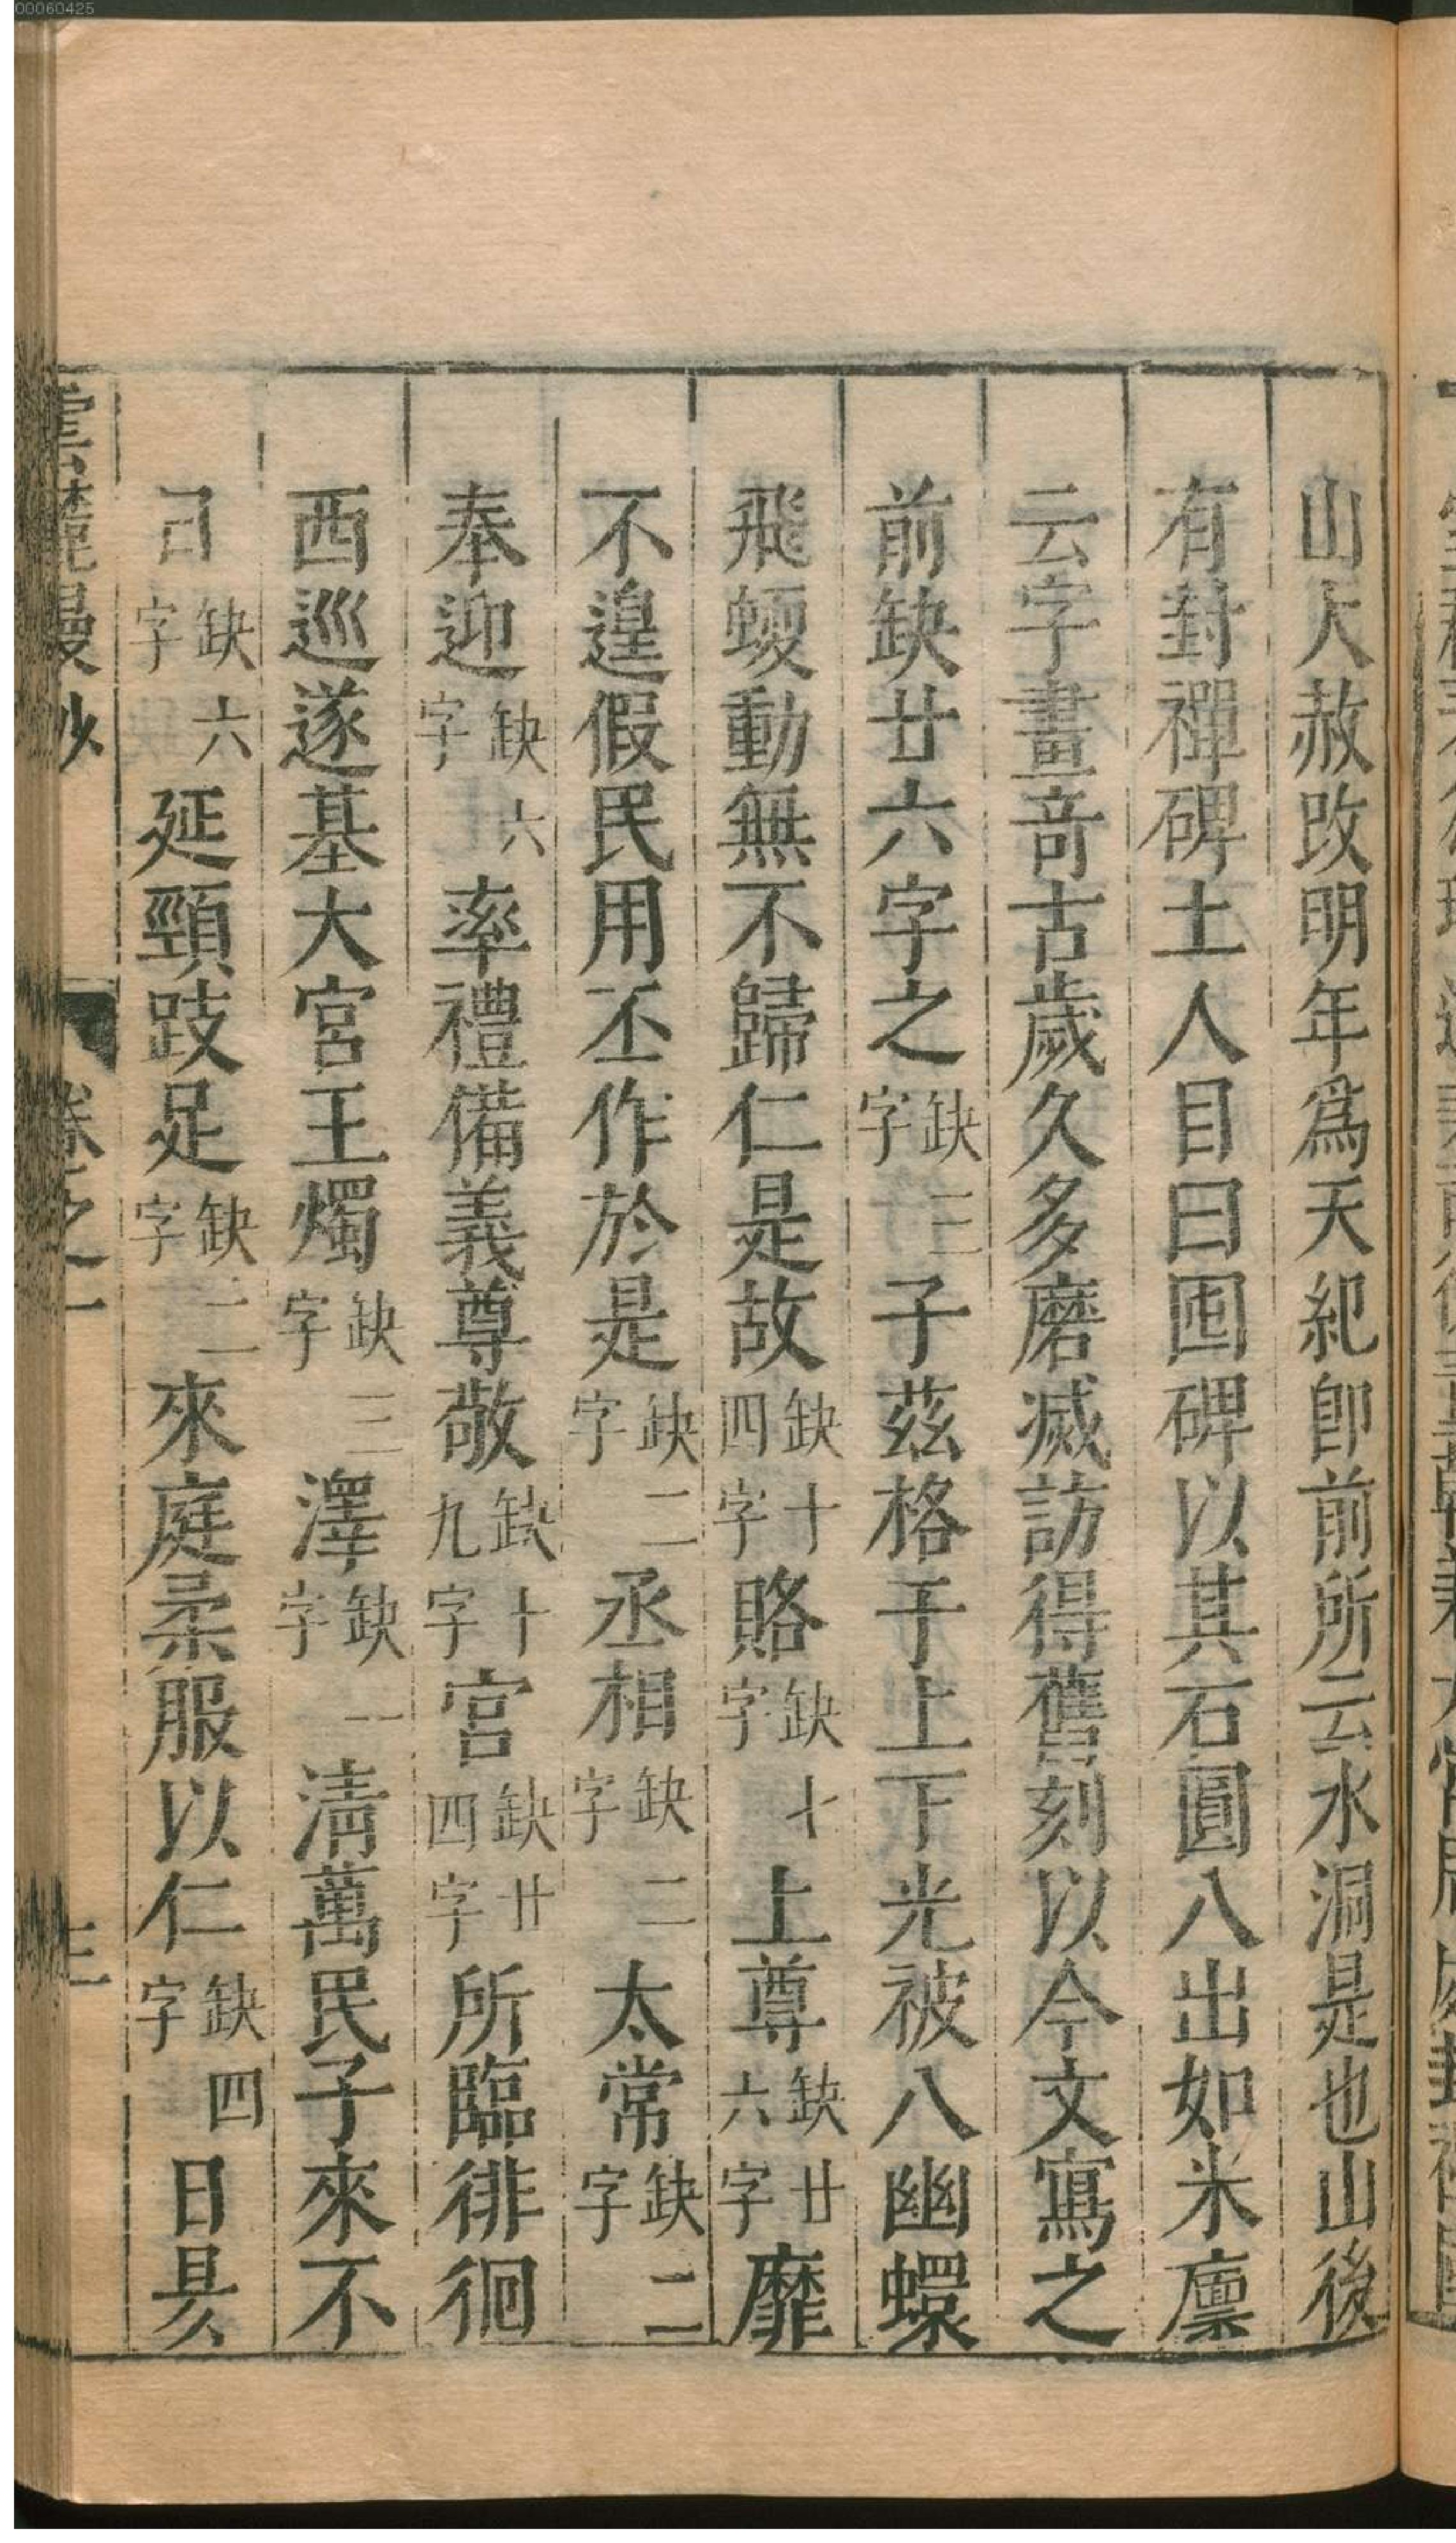 山大赦改明年爲天紀卽前所云水洞是也山後
有封禪碑土人目曰囤碑以其石圓八出如米廪
云字畫竒古歲久多磨滅訪得舊刻以今文寫之
前缺廿六字之缺三字子茲格于上下光被八幽蠉
飛蝡動無不歸仁是故缺十四字賂缺七字上尊缺廿六字靡
不遑假民用丕作於是缺二字丞相缺二字太常缺二字
奉迎缺六字率禮備義尊敬缺十九字宮缺廿四字所臨徘徊
西巡遂基大宮王燭缺三字澤缺一字淸萬民子來不
己缺六字延頸跂足缺二字來庭柔服以仁缺四字日昃
雲麓漫抄 卷之一
00060425